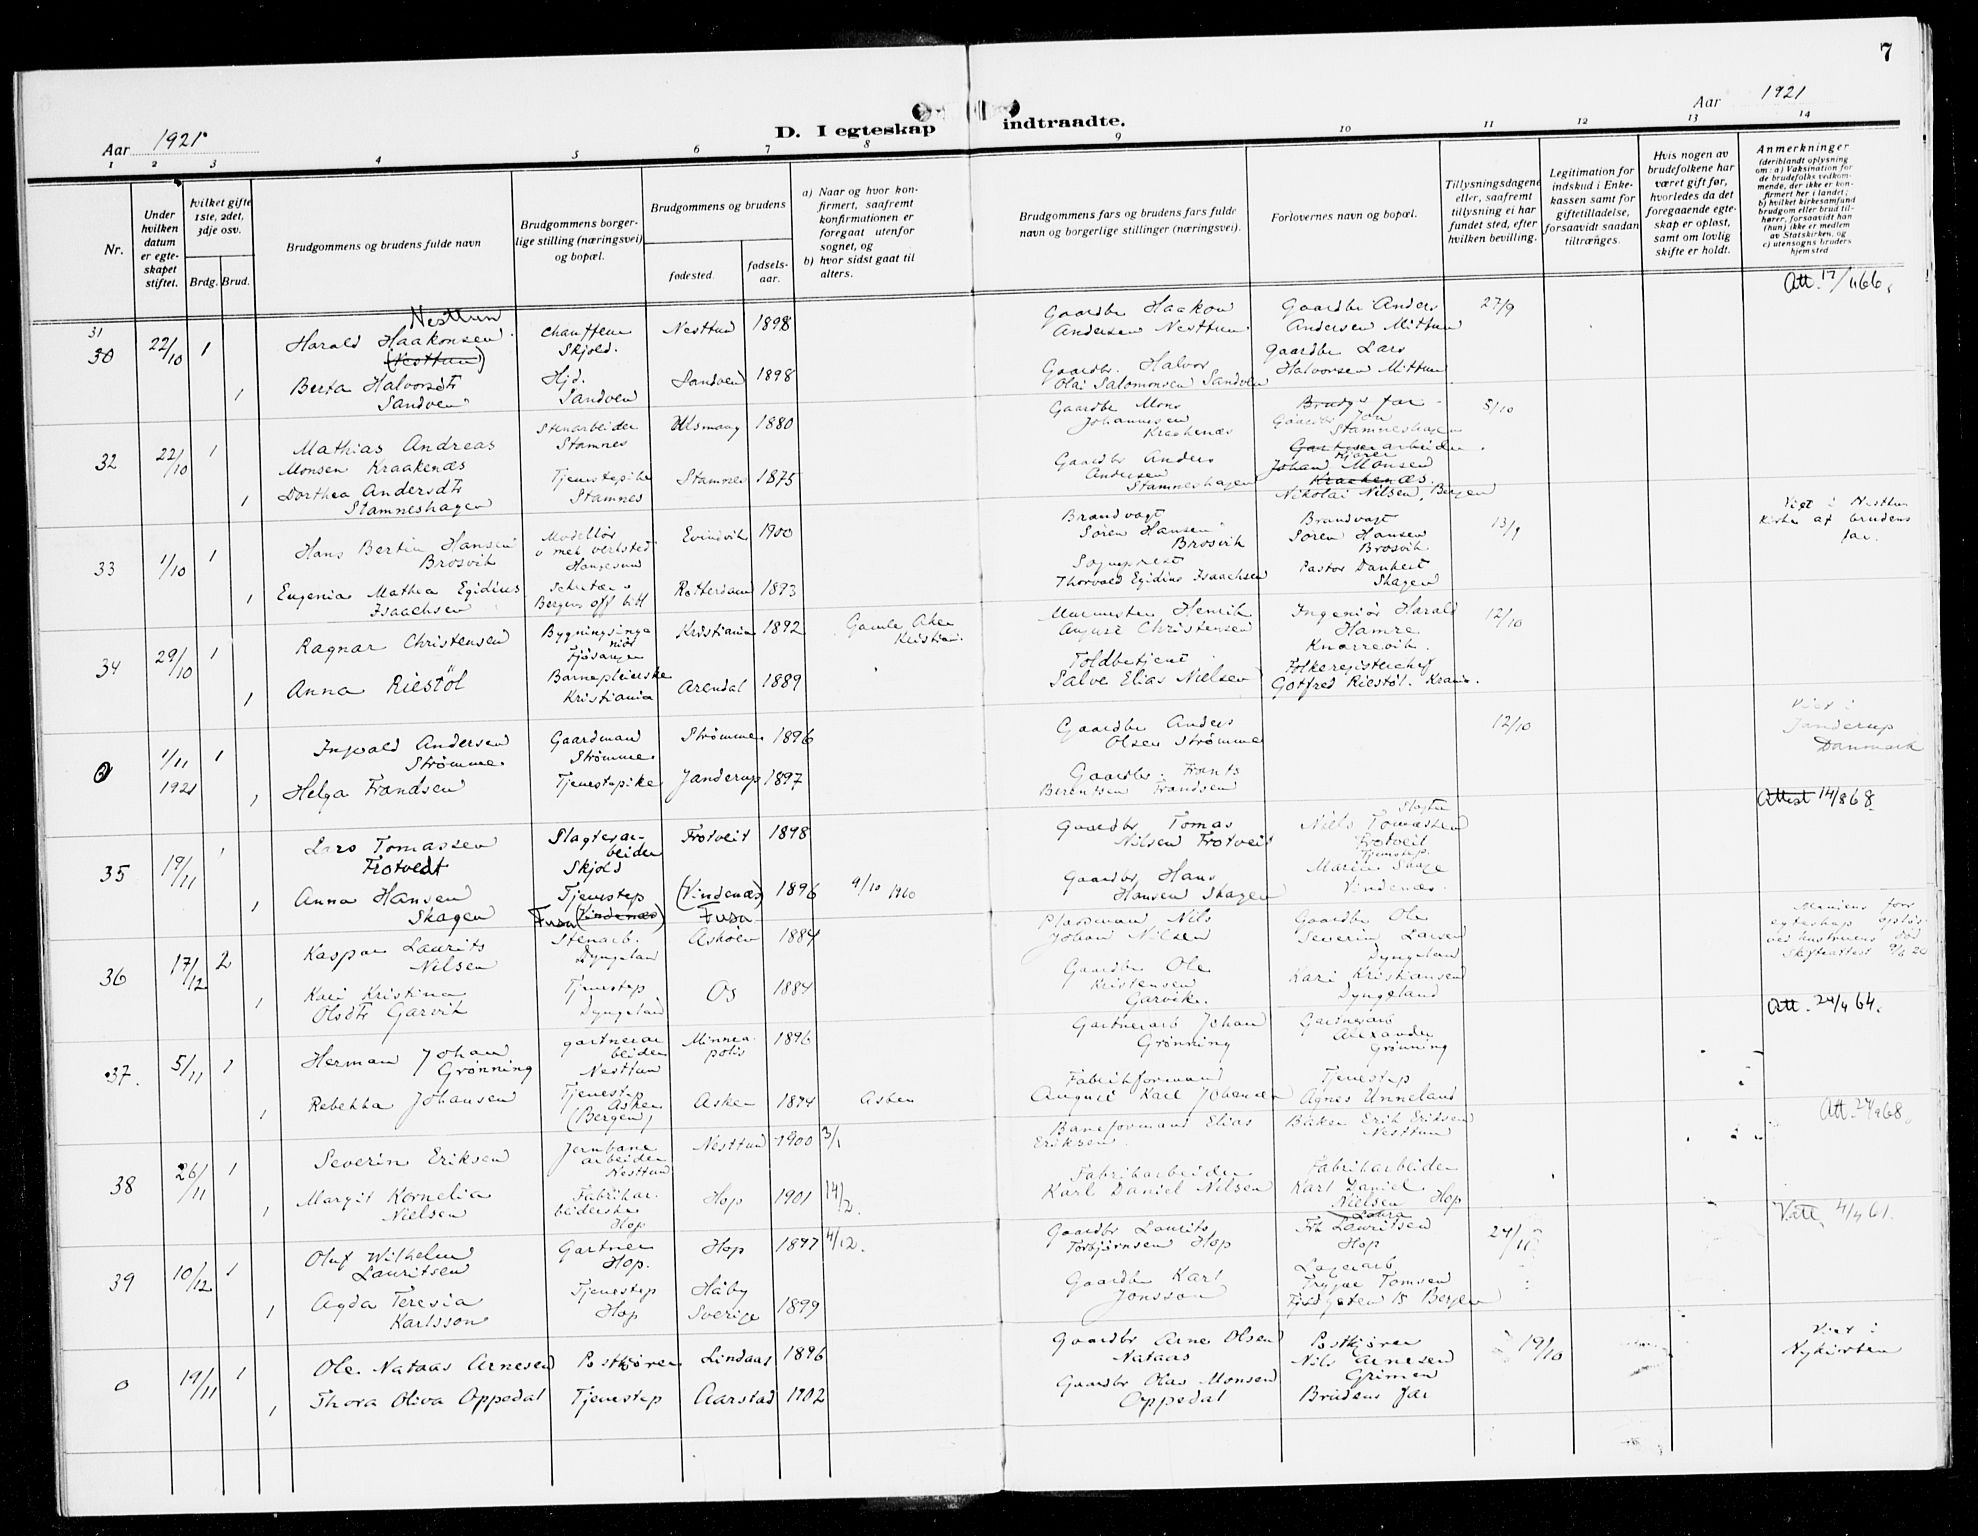 7
Aar 1921
D. I egteskap indtraadte.
Aar 1921
1 2 3 4 5 6 7 8 9 10 11 12 13 14
Nr.
Under hvilken datum er egteskapet stiftet.
hvilket gifte 1ste, 2det, 3dje osv.
Brdg. Brud.
Brudgommens og brudens fulde navn
Brudgommens borgerlige stilling (næringsvei) og bopæl.
Brudgommens og brudens
fødested.
fødselsaar.
a) Naar og hvor konfirmert, saafremt konfirmationen er foregaat utenfor sognet, og
b) hvor sidst gaat til alters.
Brudgommens fars og brudens fars fulde navn og borgerlige stillinger (næringsvei).
Forlovernes navn og bopæl.
Tillysningsdagene eller, saafremt tillysning ei har fundet sted, efter hvilken bevilling.
Legitimation for indskud i Enkekassen samt for giftetilladelse, forsaavidt saadan tiltrænges.
Hvis nogen av brudefolkene har været gift før, hvorledes da det foregaaende egteskap er opløst, samt om lovlig skifte er holdt.
Anmerkninger
(deriblandt oplysning om: a) Vaksination for de brudefolks vedkommende, der ikke er konfirmert her i landet; b) hvilket kirkesamfund brudgom eller brud tilhører, forsaavidt han (hun) ikke er medlem av Statskirken, og c) utensogns bruders hjemsted
Att. 17/11 66.
31
30 22/10 1 Harald Haakonsen Nesttun (Nesttun) Chauffeur Skjold. Nesttun 1898 Gaardbr Haakon Andersen Nesttun Gaardbr Anders Andersen Mittun 27/9
1 Berta Halvorsdtr Sandven Hjd. Sandven Sandven 1898 Gaardbr. Halvor Olai Salomonsen Sandven Gaardbr Lars Halvorsen Mittun
32 22/10 1 Mathias Andreas Monsen Kraakenæs Stenarbeider Stamnes Ulsmaag 1880 Gaardbr Mons Johannesen Kraakenæs Brudgs far Gaardbr Jon Stamneshagen 5/10
1 Dorthea Andersdtr Stamneshagen Tjenestepike Stamnes Stamnes 1875 Gaardbr Anders Andersen Stamneshagen Johan Monsen Kraakenæs. Nikolai Nilsen, Bergen
33 1/10 1 Hans Bertin Hansen Brosvik Modellør v mek verksted Haugesund Evindvik 1900 Brandvagt Søren Hansen Brosvik Brandvagt Søren Hansen Brosvik 13/9 Viet i Nesttun Kirke af brudens far.
1 Eugenia Mathea Egidius Isaachsen Sekretær Bergens off bibl Rotterdam 1893 Sogneprest Thorvald Egidius Isaachsen Pastor Dankert Skagen
34 29/10 1 Ragnar Christensen Bygningsingeniør Fjøsanger Kristiania 1892 Gamle Aker Kristian. Murmester Henrik August Christensen Ingeniør Harald Hamre Knarrevik. 12/10
1 Anna Riestöl Barnepleierske Kristiania Arendal 1889 Toldbetjent Salve Elias Nielsen Folkeregisterchef Gotfred Riestöl. Krania.
0 1/11 1921 1 Ingvald Andersen Strømme. Gaardmand Strømme. Strømme 1896 Gaardbr Anders Olsen Strømme 12/10 Viet i Janderup Danmark
1 Helga Frandsen Tjenestepike Janderup 1897 Gaardbr. Frants Berentsen Frandsen
Attest 14/8 68.
35 19/11 1 Lars Tomassen Frotvedt Slagterarbeider Skjold Frotveit 1898 Gaardbr Tomas Nilsen Frotveit Slagter Niels Tomassen Frotveit
1 Anna Hansen Skagen Tjenestep (Vindenæs) Fusa (Vindenæs) Fusa 1896 9/10 1960 Gaardbr Hans Hansen Skagen Tjenestep. Marie Skage Vindenæs.
36 17/12 2 Kaspar Laurits Nilsen Stenarb. Dyngeland Askøen 1884 Pladsmand Nils Johan Nilsen Gaardbr Ole Severin Larsen Dyngeland Mandens forr egteskap opløst ved hustruens død Skifteattest 9/6 20
1 Kari Kristina Olsdtr Garvik Tjenestep Dyngeland Os 1884 Gaardbr Ole Kristensen Garvik. Kari Kristiansen Dyngeland
Att. 24/4 64.
37. 5/11 1 Herman Johan Grønning gartnerarbeider Nesttun Minneapolis 1896 Gartnerarb Johan Grønning Gartnerarb Alexander Grønning
1 Rebekka Johansen Tjenestep Asker (Bergen) Asker 1874 Asker Fabrikformand August Karl Johansen Tjenestep Agnes Unneland
Att. 24/9 68.
38 26/11 1 Severin Eriksen Jernbanearbeider Nesttun Nesttun 1900 3/1 Baneformand Elias Eriksen Erik Eriksen Nesttun
1 Margit Kornelia Nielsen Fabrikarbeiderske Hop Hop 1901 14/2. Fabrikarbeider Karl Daniel Nilsen Fabrikarbeider Karl Daniel Nielsen Hop
Vatt. 4/4 61.
39 10/12 1 Oluf Wilhelm Lauritsen Gartner Hop. Hop 1897 4/12. Gaardbr Laurits Torbjørnsen Hop Frk Laura Lauritsen Hop 24/11
1 Agda Teresia Karlsson Tjenestep Hop Håby Sverige 1899 Gaardbr Karl Jonsson Lagerarb Trygve Tomsen 15 Bergen
0 19/11 1 Ole Nataas Arnesen Postkjører Lindaas 1896 Gaardbr Arne Olsen Nataas Postkjører Nils Arnesen Grimen 19/10 Viet i Nykirken
1 Thora Oliva Oppedal Tjenestep Aarstad 1902 Gaardbr Olas Monsen Oppedal Brudens far